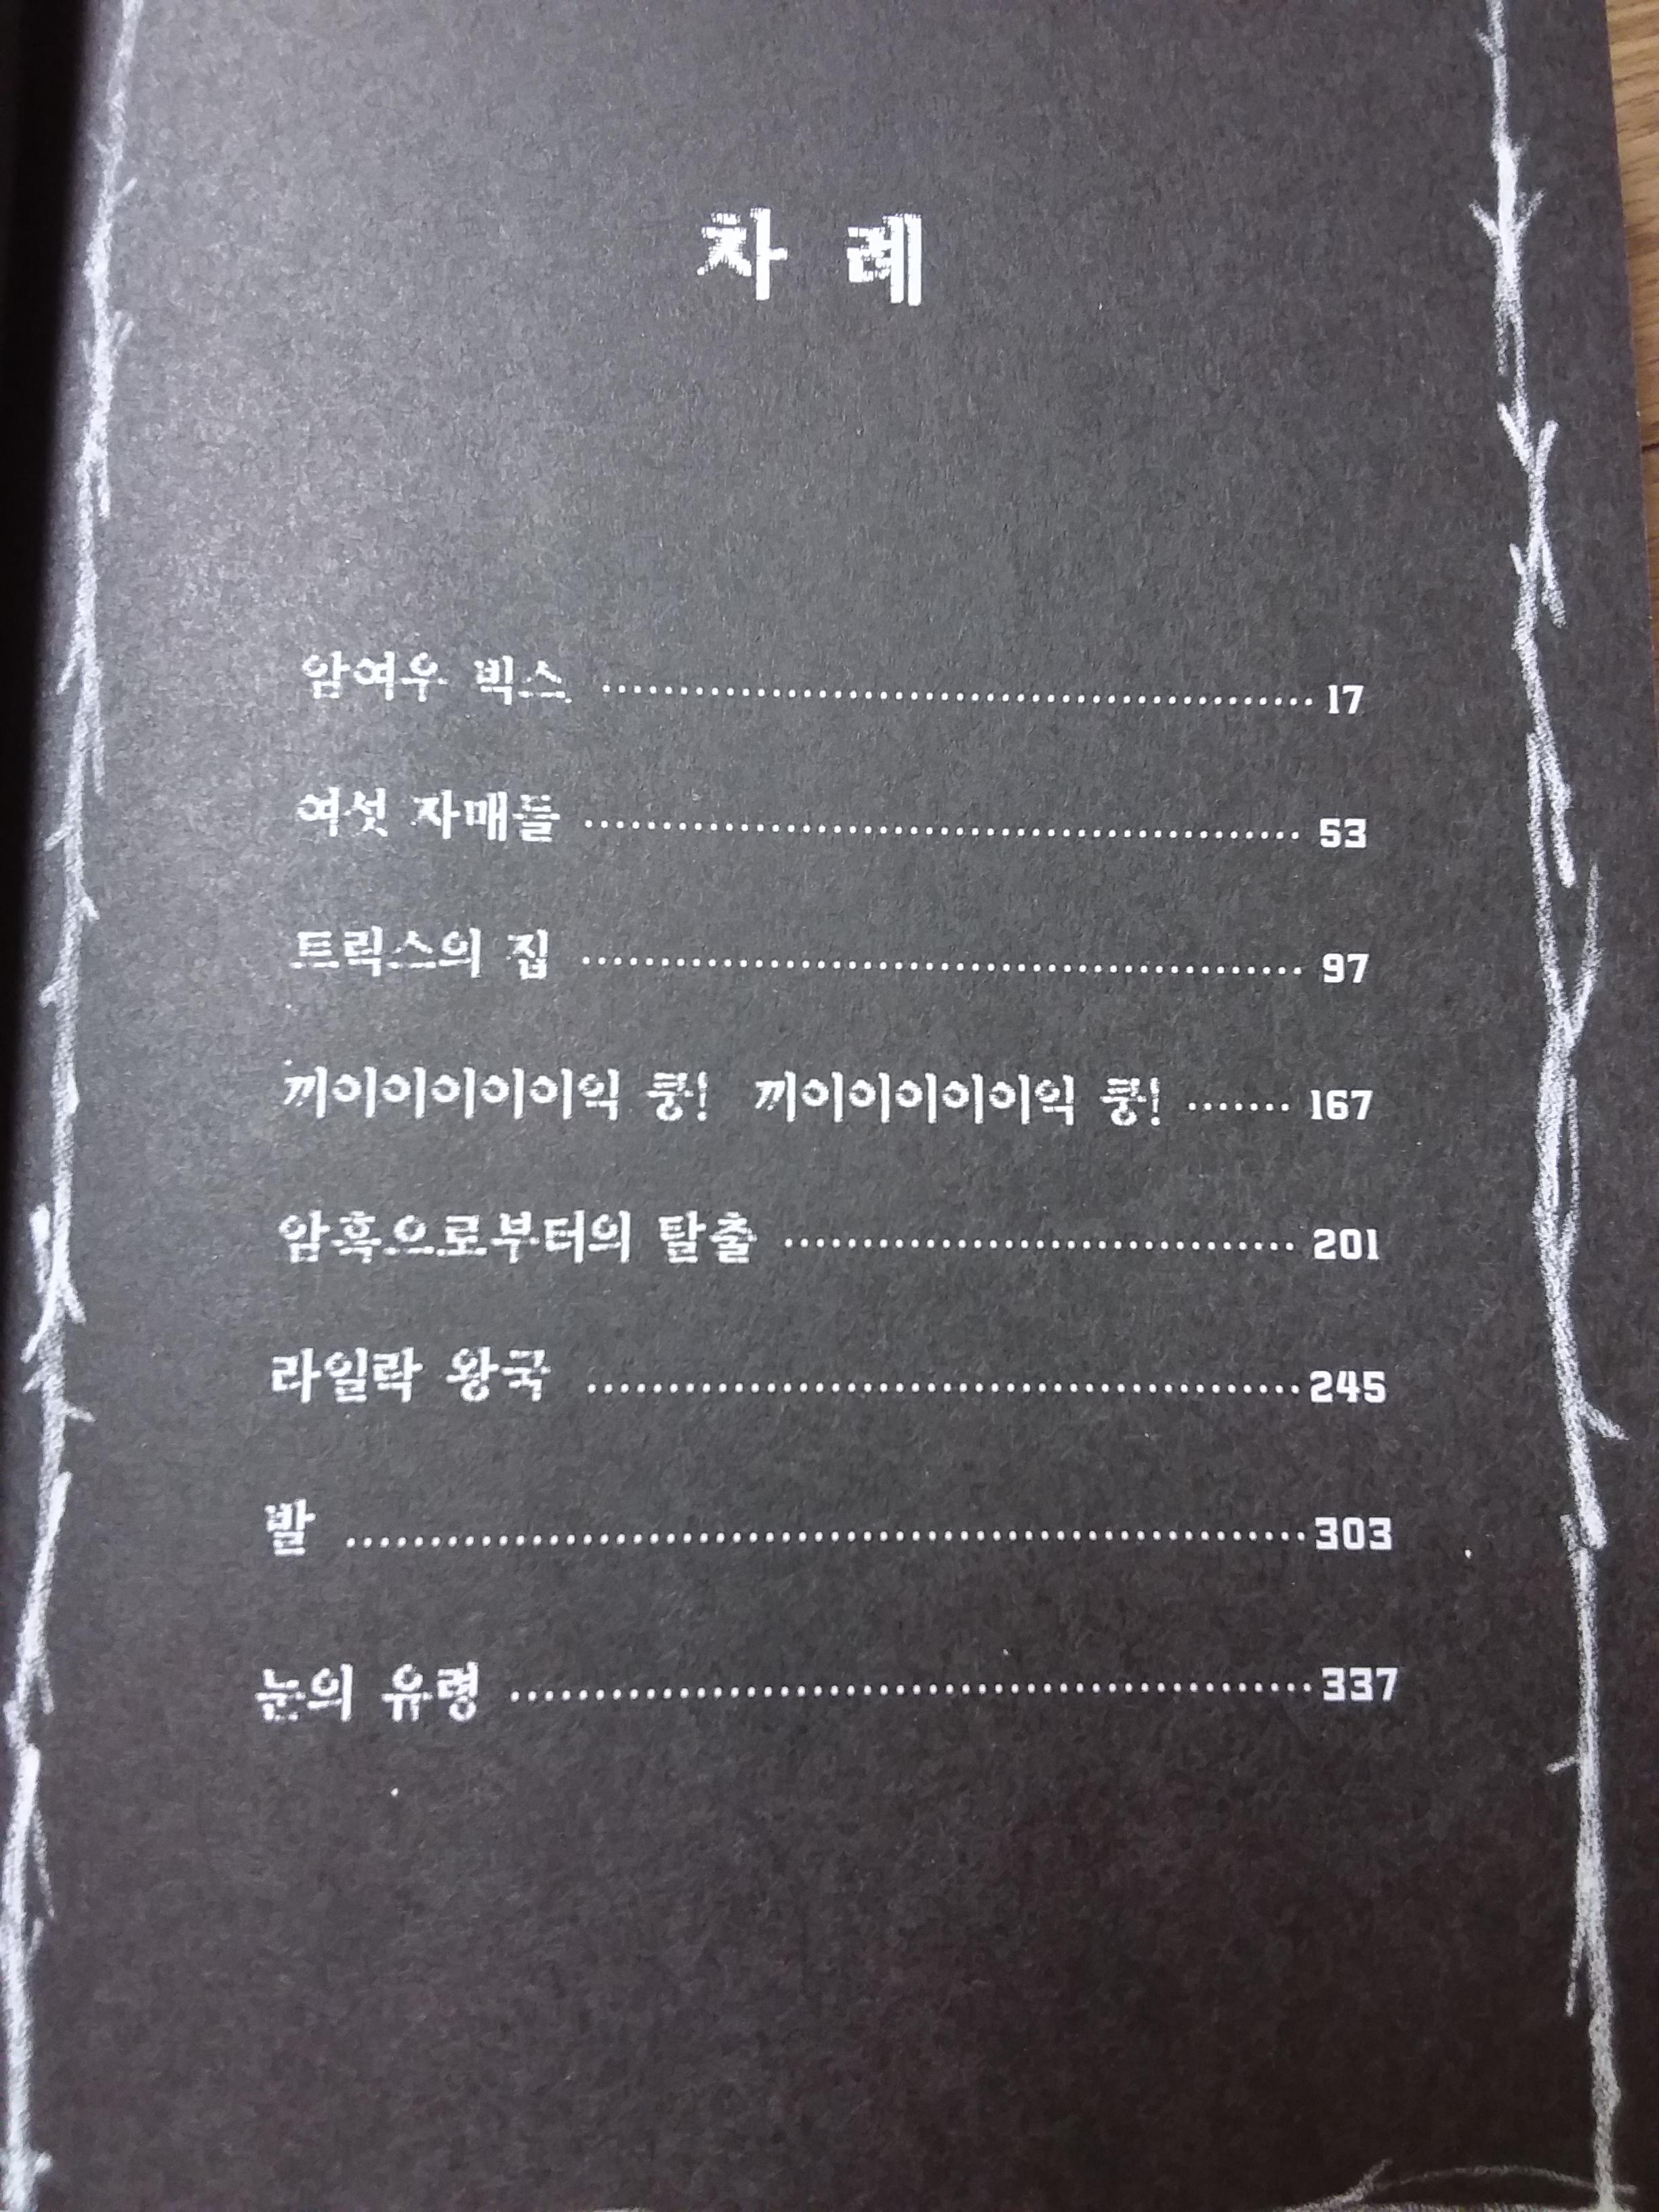 차 례
암여우 빅스 ........................................ 17
여섯 자매들 ........................................ 53
트릭스의 집 ........................................ 97
끼이이이이이익 쿵! 끼이이이이이익 쿵! ....... 167
암흑으로부터의 탈출 .............................. 201
라일락 왕국 ........................................ 245
발 ........................................ 303
눈의 유령 ........................................ 337